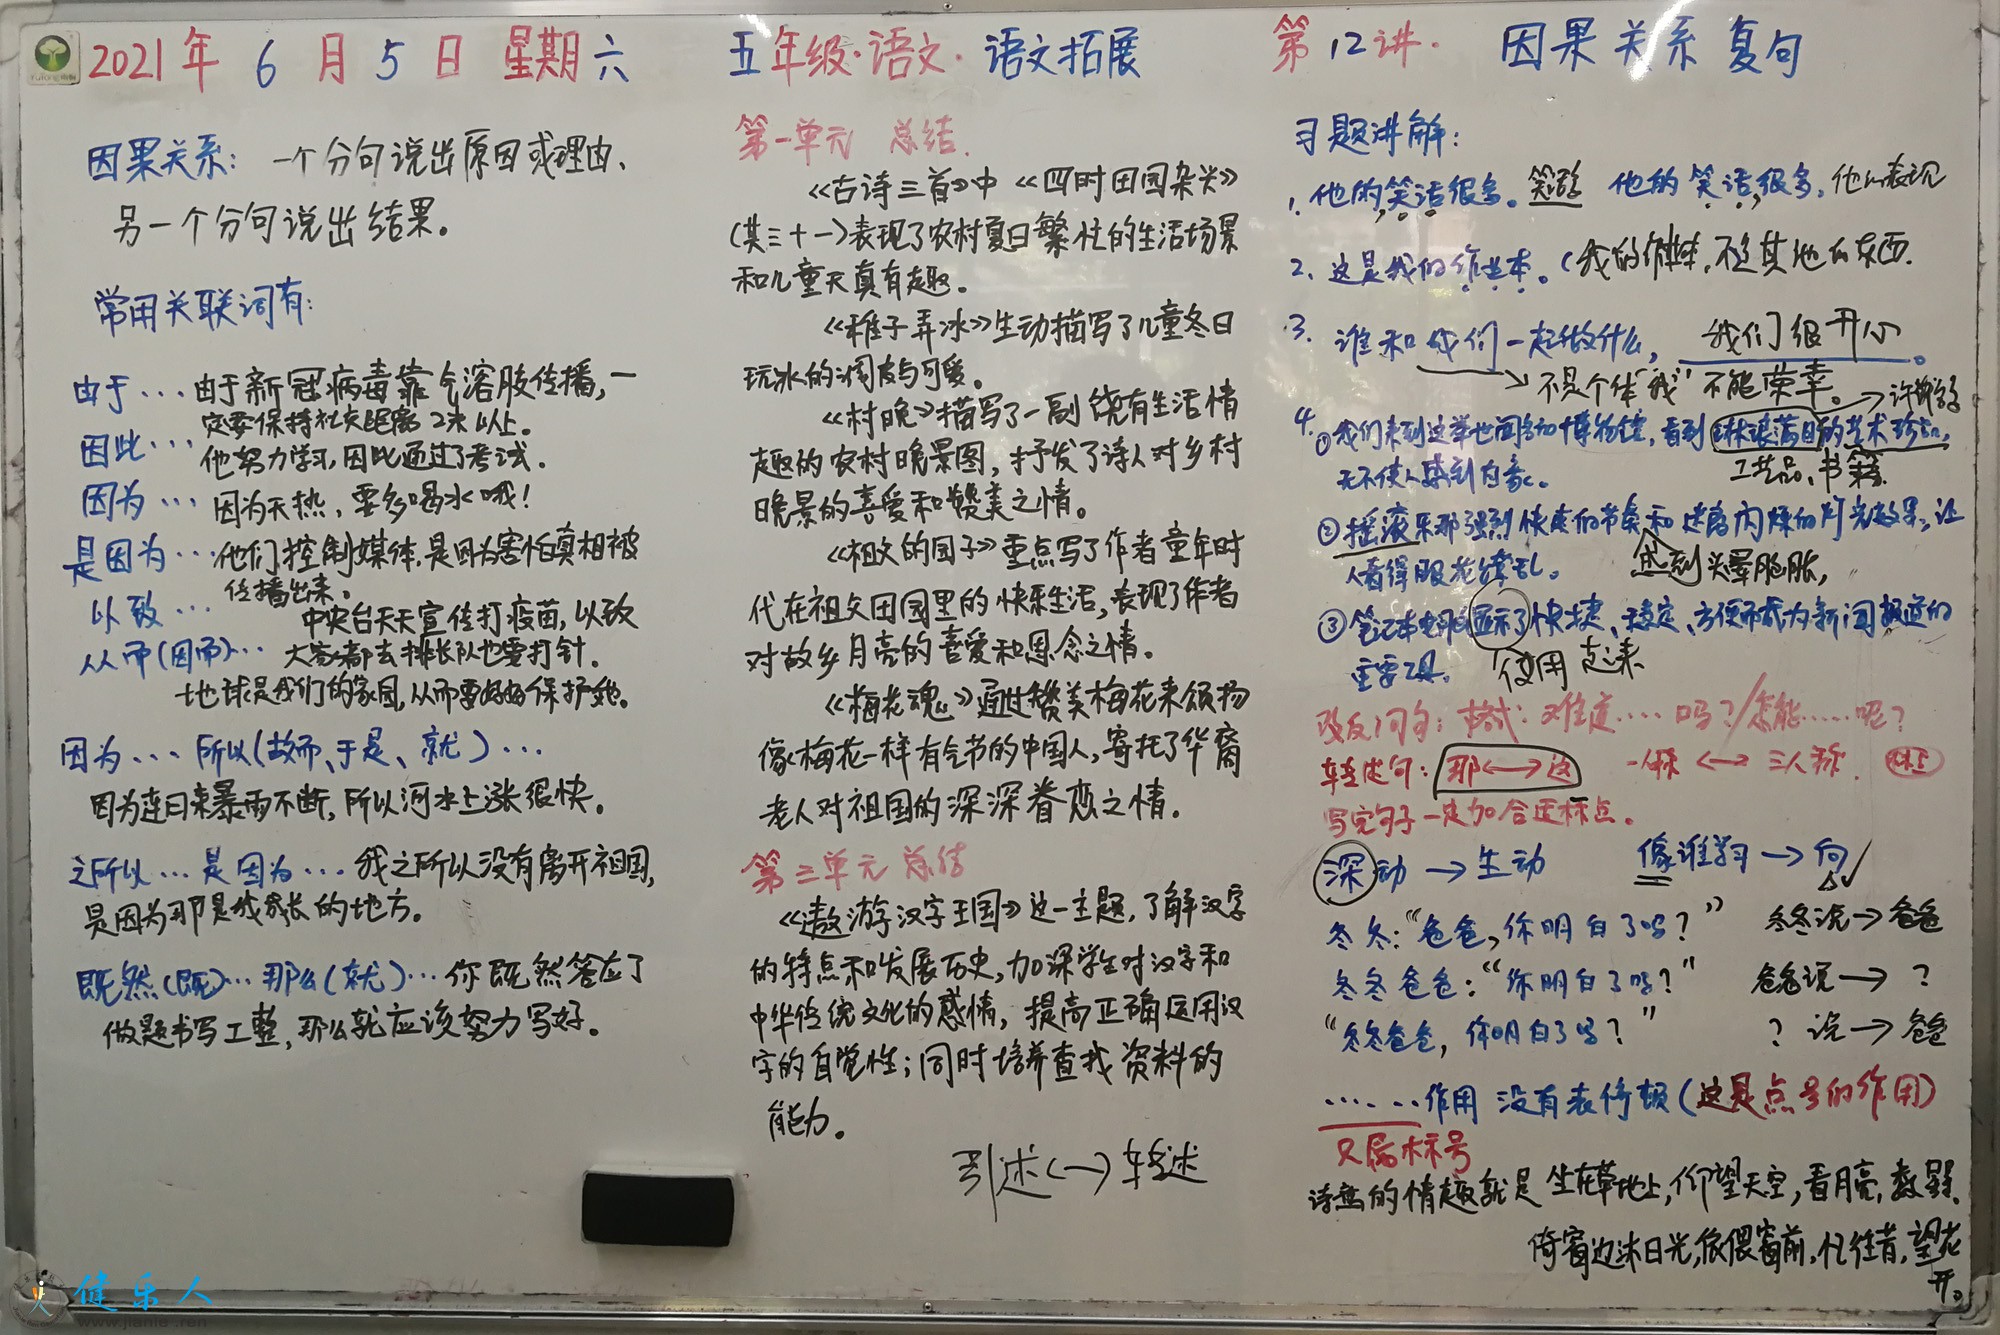 2021年 6月 5日 星期六
五年级·语文·语文拓展
第12讲. 因果关系 复句
因果关系: 一个分句说出原因或理由、
另一个分句说出结果。
常用关联词有:
由于... 由于新冠病毒靠气溶胶传播,一
定要保持社交距离2米以上。
因此... 他努力学习,因此通过了考试.
因为... 因为天热,要多喝水哦!
是因为... 他们控制媒体,是因为害怕真相被
传播出来。
以致... 中央台天天宣传打疫苗,以致
大家都去排长队也要打针.
从而(因而)...
地球是我们的家园,从而要好好保护她。
因为... 所以(故而、于是、就)...
因为连日来暴雨不断,所以河水上涨很快。
之所以... 是因为... 我之所以没有离开祖国,
是因为那是我成长的地方。
既然(既)... 那么(就)... 你既然答应了
做题书写工整,那么就应该努力写好。
第一单元 总结.
《古诗三首》中《四时田园杂兴》
(其三十一)表现了农村夏日繁忙的生活场景
和儿童天真有趣。
《稚子弄冰》生动描写了儿童冬日
玩冰的调皮与可爱。
《村晚》描写了一副饶有生活情
趣的农村晚景图,抒发了诗人对乡村
晚景的喜爱和赞美之情。
《祖父的园子》重点写了作者童年时
代在祖父田园里的快乐生活,表现了作者
对故乡月亮的喜爱和思念之情。
《梅花魂》通过赞美梅花来颂扬
像梅花一样有气节的中国人,寄托了华裔
老人对祖国的深深眷恋之情。
第三单元 总结
《遨游汉字王国》这一主题,了解汉字
的特点和发展历史,加深学生对汉字和
中华传统文化的感情,提高正确运用汉
字的自觉性;同时培养查找资料的
能力。
引述↔转述
习题讲解:
1. 他的笑话很多。 他的笑话很多,他的表现
2. 这是我的作业本。(我的作业本,不是其他的东西.
3. 谁和我们一起做什么, 我们很开心。
不是个体"我"不能荣幸。
4. ①我们来到这举世闻名的博物馆,看到琳琅满目的艺术珍品,
工艺品、书籍
无不使人感到自豪。
②摇滚乐那强烈快速的节奏和迷离闪烁的灯光效果,让
人看得眼花缭乱。 感到头晕脑胀,
③笔记本电脑显示了快捷、稳定、方便而成为新闻报道的
重要工具。 使用起来
改反问句: 格式: 难道.....吗?/怎能......呢?
转述句: 那↔这 一人称↔三人称.
写完句子一定加合适标点。
深动→生动 像谁学习→向
冬冬:"爸爸,你明白了吗?" 冬冬说→爸爸
冬冬爸爸:"你明白了吗?" 爸爸说→?
"冬冬爸爸,你明白了吗?" ?说→爸爸
......作用 没有表停顿(这是点号的作用)
只属标号
诗意的情趣就是坐在草地上,仰望天空,看月亮,数星星.
倚窗边沐日光,依偎窗前,忆往昔,望花
开。
健乐人
www.jianle.ren